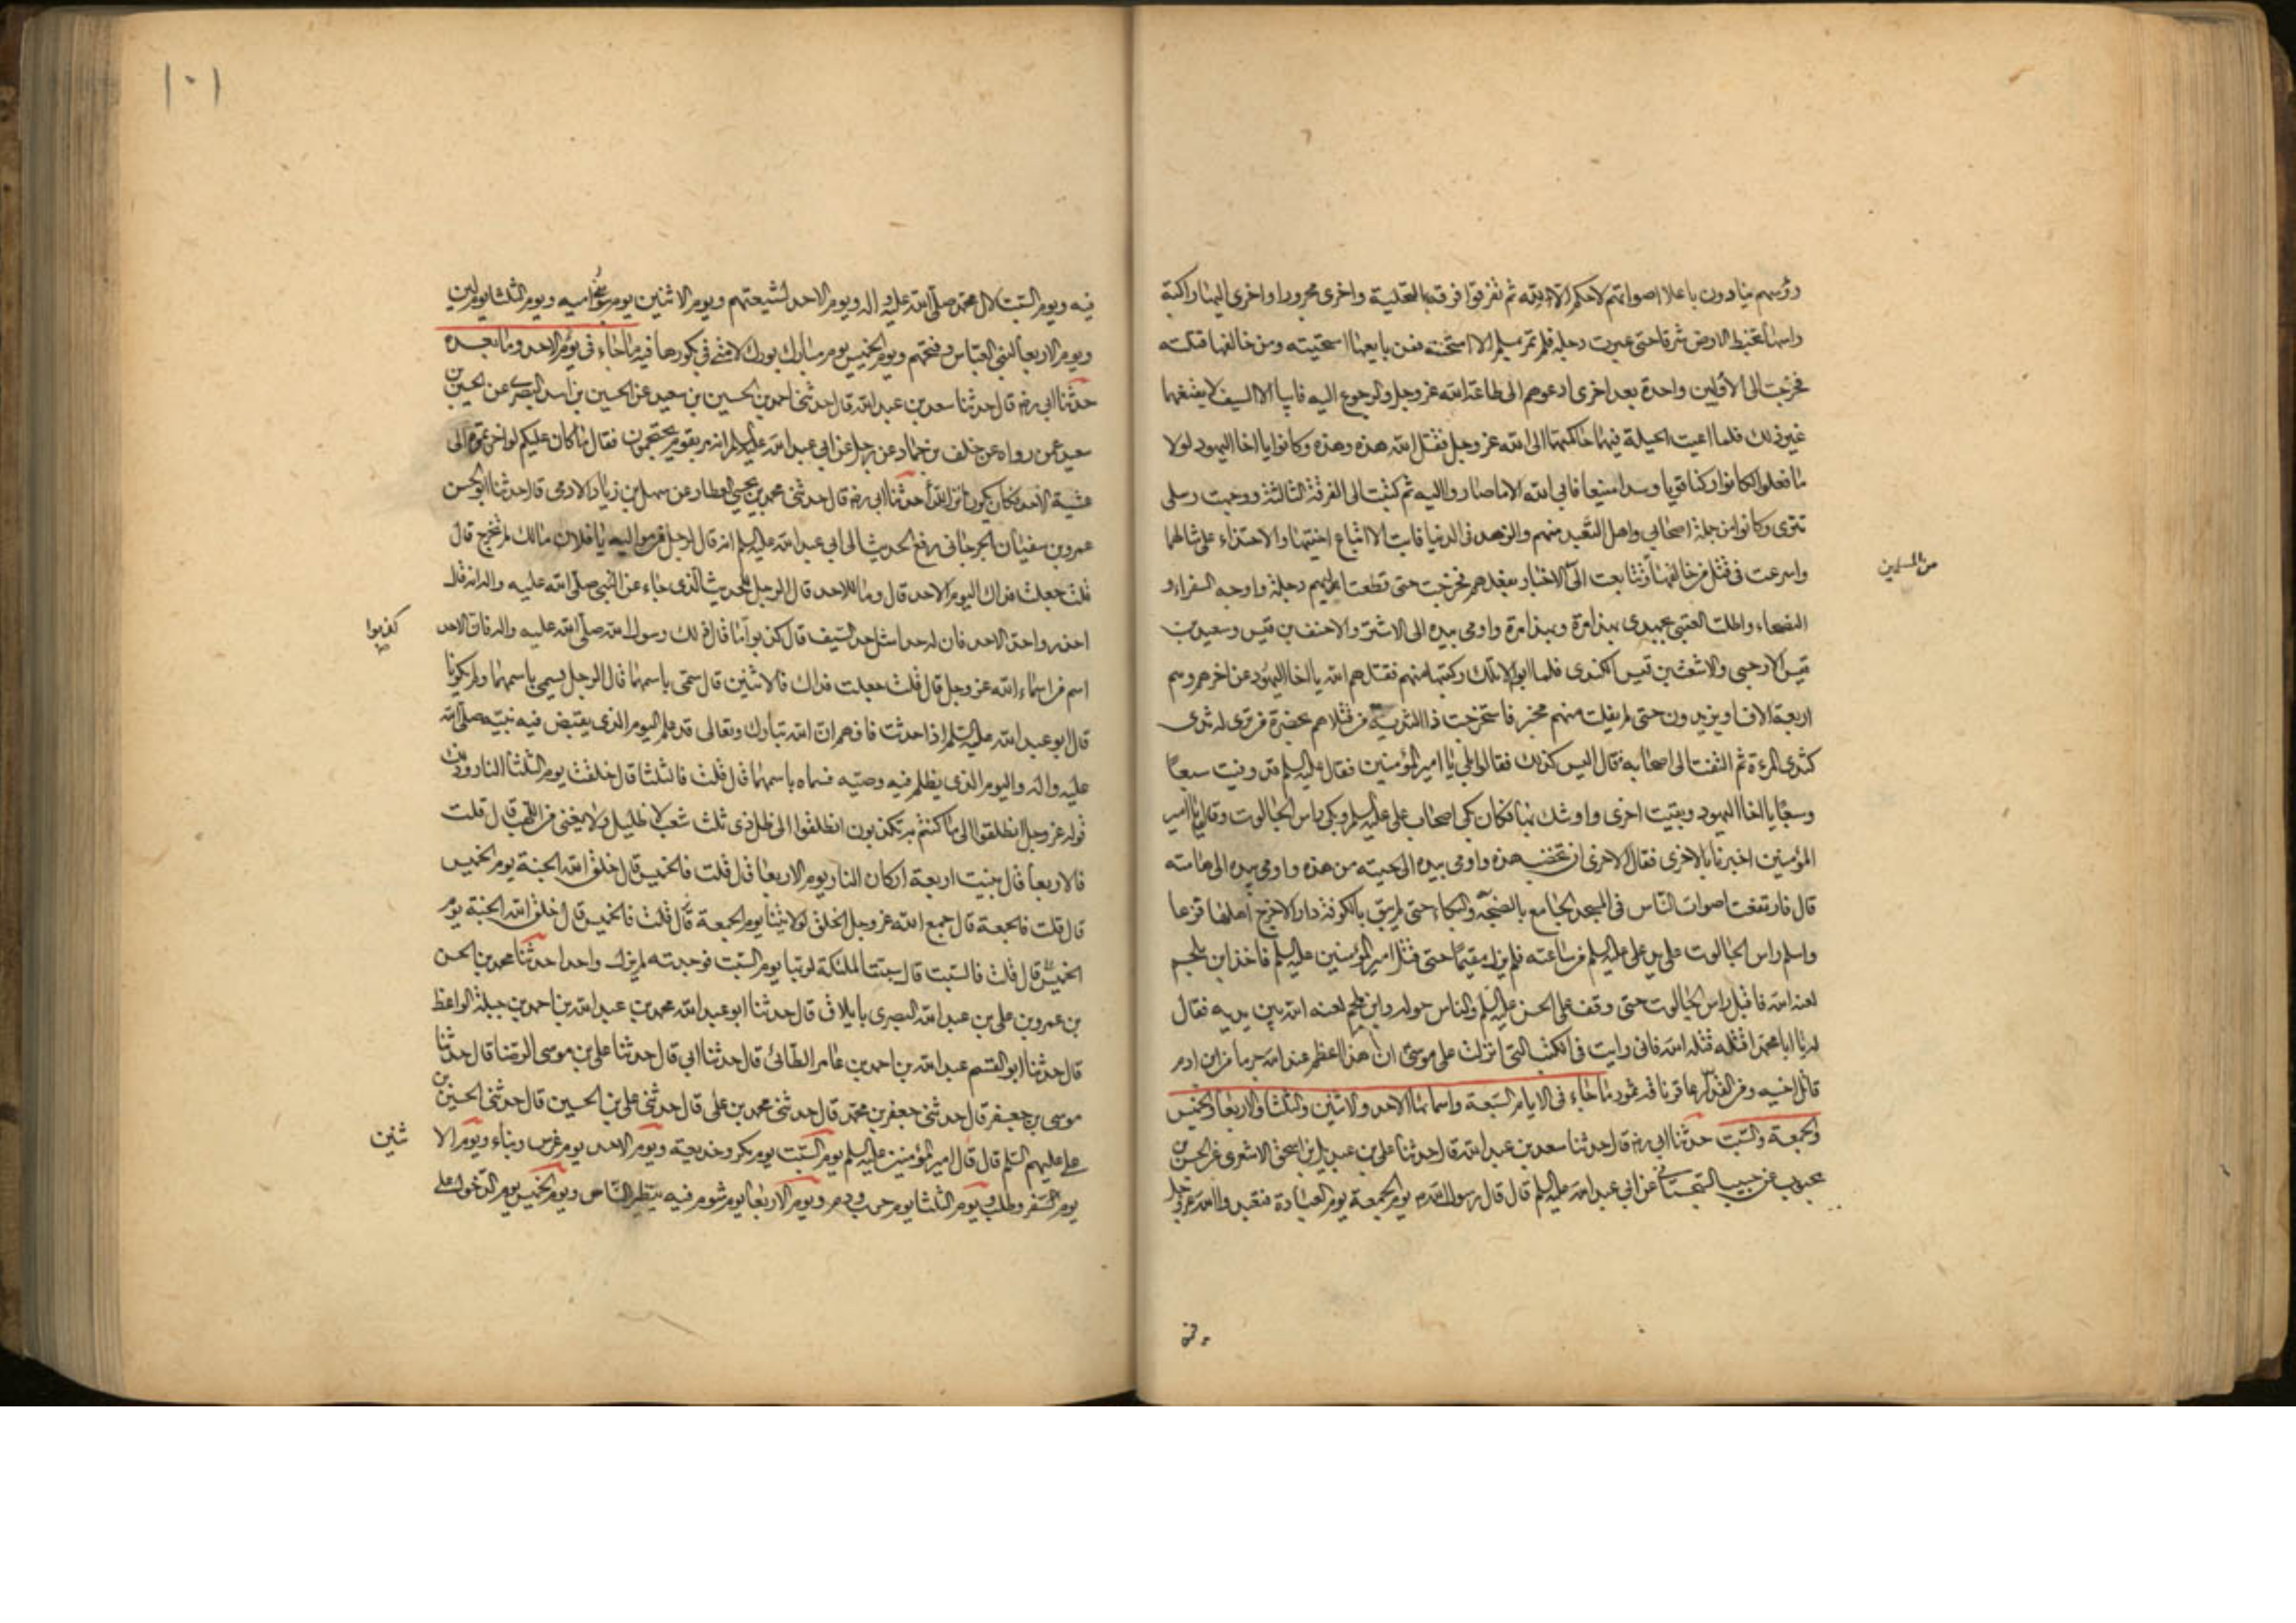 رؤسهم ينادون باعلا اصواتهم لاحكم الا لله ثم تفرقوا فرقة بالنخيلة واخرى بحرورا واخرى اليها راكبة
راسها تخبط الارض شرقا حتى عبرت دجلة فلم تمر بمسلم الا امتحنته فمن بايعها استحيته ومن خالفها قتلته
فخرجت الى الاوليين واحدة بعد اخرى ادعوهم الى طاعة الله عز وجل والرجوع اليه فابيا الا السيف لا يقنعهما
غير ذلك فلما اعيت الحيلة فيهما حاكمتهما الى الله عز وجل فقتل الله هذه وهذه وكانوا يا اخا اليهود لولا
ما فعلوا لكانوا ركنا قويا وسدا منيعا فابى الله الا ما صاروا اليه ثم كتبت الى الفرقة الثالثة ووجهت رسلى
تترى وكانوا من جلة اصحابي واهل التعبد منهم والزهد في الدنيا فابت الا اتباع اختيها والاحتذاء على مثالهما
واسرعت فى قتل من خالفها وتتابعت الى الاخبار بفعلهم فخرجت حتى قطعت اليهم دجلة واوجه السفراء و
من المسلمين
النصحاء واطلب العتبى بجهدى بهذا مرة وبهذا مرة واومى بيده الى الاشتر والاحنف بن قيس وسعيد بن
قيس الارحبي والاشعث بن قيس الكندى فلما ابوا الا تلك ركبتها منهم فقتلهم الله يا اخا اليهود عن اخرهم وهم
اربعة الاف او يزيدون حتى لم يفلت منهم مخبر فاستخرجت ذا الثدية من قتلاهم بحضرة من ترى له ثدى
كثدى المرءة ثم التفت الى اصحابه فقال اليس كذلك فقالوا بلى يا امير المؤمنين فقال عليه السلم قد وفيت سبعا
وسبعا يا اخا اليهود وبقيت اخرى واوشك بها فكان بكى اصحاب على عليه السلم وبكى راس الجالوت وقالوا يا امير
المؤمنين اخبرنا بالاخرى فقال الاخرى ان تخضب هذه واومى بيده الى لحيته من هذه واومى بيده الى هامته
قال فارتفعت اصوات الناس فى المسجد الجامع بالضجة والبكاء حتى لم يبق بالكوفة دار الا خرج اهلها فزعا
واسلم راس الجالوت على يدي على عليه السلم من ساعته فلم يزل مقيما حتى قتل امير المؤمنين عليه السلم فاخذ ابن ملجم
لعنه الله فاقبل راس الجالوت حتى وقف على الحسن عليه السلم والناس حوله وابن ملجم لعنه الله بين يديه فقال
له يا ابا محمد اقتله قتله الله فانى رايت فى الكتب التى انزلت على موسى ان هذا اعظم عند الله جرما من ابن ادم
قاتل اخيه ومن القدار عاقر ناقة ثمود ما جاء فى الايام السبعة واسمائها الاحد والاثنين والثلثا والاربعا والخميس
والجمعة والسبت حدثنا ابى ره قال حدثنا سعد بن عبد الله قال حدثنا على بن عبد الله بن اسحق الاشعرى عن الحسن بن
محبوب عن حبيب السجستاني عن ابي عبد الله عليه السلم قال قال رسول الله ص يوم الجمعة يوم العبادة فتعبدوا الله عز وجل
١٠١
فيه ويوم السبت لال محمد صلى الله عليه واله ويوم الاحد لشيعتهم ويوم الاثنين يوم بنى امية ويوم الثلثا يوم لين
ويوم الاربعا لبنى العباس وفتحهم ويوم الخميس يوم مبارك بورك لامتى فى بكورها فيه ما جاء فى يوم الاحد وما بعده
حدثنا ابى ره قال حدثنا سعد بن عبد الله قال حدثنى احمد بن الحسين بن سعيد عن الحسين بن اسد البصرى عن الحسين بن
سعيد عمن رواه عن خلف بن حماد عن رجل عن ابى عبد الله عليه السلم انه مر بقوم يحتجمون فقال ما كان عليكم لو اخرتموه الى
عشية الاحد فكان يكون انزل للداء حدثنا ابى ره قال حدثنى محمد بن يحيى العطار عن سهل بن زياد الادمى قال حدثنا ابو الحسن
عمرو بن سفيان الجرجاني رفع الحديث الى ابى عبد الله عليه السلم انه قال لرجل من مواليه يا فلان مالك لم تخرج قال
قلت جعلت فداك اليوم الاحد قال وما للاحد قال الرجل للحديث الذى جاء عن النبى صلى الله عليه واله انه قال
احذروا حد الاحد فان له حدا مثل حد السيف قال كذبوا ما قال ذلك رسول الله صلى الله عليه واله فان الاحد
كذبوا
اسم من اسماء الله عز وجل قال قلت جعلت فداك فالاثنين قال سمى باسمهما قال الرجل يسمى باسمهما ولم يكونا
قال ابو عبد الله عليه السلم اذا حدثت فافهم ان الله تبارك وتعالى قد علم اليوم الذى يقبض فيه نبيه صلى الله
عليه واله واليوم الذى يظلم فيه وصيه فسماه باسمهما قال قلت فالثلثا قال خلقت يوم الثلثا النار وذلك
قوله عز وجل انطلقوا الى ما كنتم به تكذبون انطلقوا الى ظل ذى ثلث شعب لا ظليل ولا يغنى من اللهب قال قلت
فالاربعا قال بنيت اربعة اركان النار يوم الاربعا قال قلت فالخميس قال خلق الله الجنة يوم الخميس
قال قلت فالجمعة قال جمع الله عز وجل الخلق لولايتنا يوم الجمعة قال قلت فالخميس قال خلق الله الجنة يوم
الخميس قال قلت فالسبت قال سبتت الملئكة لربها يوم السبت فوجدته لم يزل واحدا حدثنا محمد بن الحسن
بن عمرو بن على بن عبد الله البصرى بايلاق قال حدثنا ابو عبد الله محمد بن عبد الله بن احمد بن جبلة الواعظ
قال حدثنا ابو القسم عبد الله بن احمد بن عامر الطائى قال حدثنا ابى قال حدثنا على بن موسى الرضا قال حدثنا
موسى بن جعفر قال حدثنى جعفر بن محمد قال حدثنى محمد بن على قال حدثنى على بن الحسين قال حدثنى الحسين بن
على عليهم السلم قال قال امير المؤمنين عليه السلم يوم السبت يوم مكر وخديعة ويوم الاحد يوم غرس وبناء ويوم الا
ثنين
يوم سفر وطلب ويوم الثلثا يوم حرب ودم ويوم الاربعا يوم شوم فيه يتطير الناس ويوم الخميس يوم الدخول على